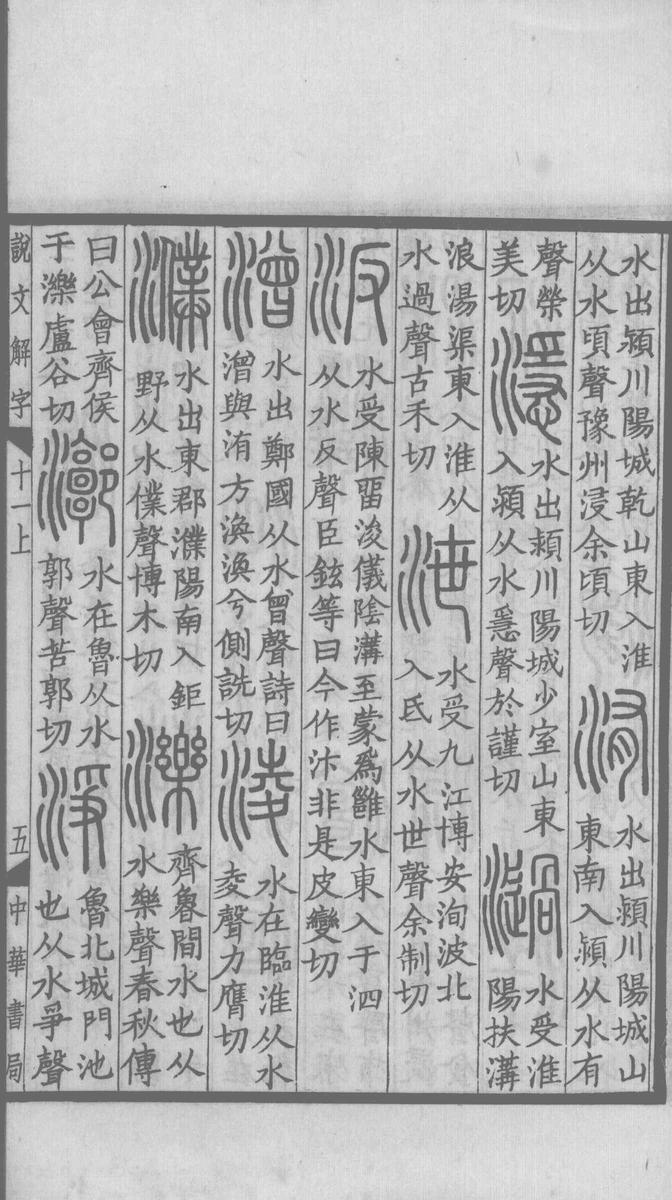 水出潁川陽城乾山東入淮
从水頃聲豫州浸余頃切
洧
水出潁川陽城山
東南入潁从水有
聲榮
美切
濦
水出潁川陽城少室山東
入潁从水㥯聲於謹切
濄
水受淮
陽扶溝
浪湯渠東入淮从
水過聲古禾切
泄
水受九江博安洵波北
入氐从水世聲余制切
汳
水受陳畱浚儀陰溝至蒙爲雝水東入于泗
从水反聲臣鉉等曰今作汴非是皮變切
潧
水出鄭國从水曾聲詩曰
潧與洧方渙渙兮側詵切
淩
水在臨淮从水
夌聲力膺切
濮
水出東郡濮陽南入鉅
野从水僕聲博木切
濼
齊魯閒水也从
水樂聲春秋傳
曰公會齊侯
于濼盧谷切
漷
水在魯从水
郭聲苦郭切
淨
魯北城門池
也从水爭聲
說文解字
十一上
五
中華書局